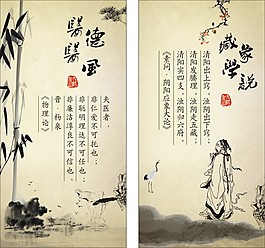 醫德
醫風
夫医者，
非仁爱不可托也；
非聪明理达不可任也；
非廉洁淳良不可信也。
晋 杨泉
《物理论》
藏象
學說
清阳出上窍，浊阴出下窍；
清阳发腠理，浊阴走五藏；
清阳实四支，浊阴归六府。
《素问·阴阳应象大论》